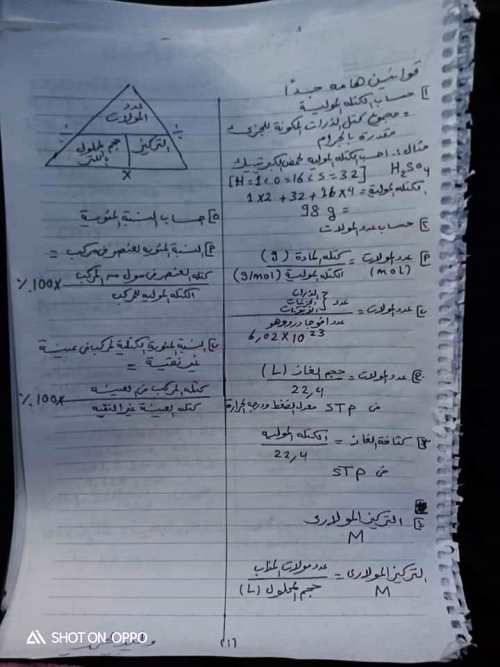 قوانين هامه جيدًا
[1] حساب الكتله المولية
= مجموع كتل الذرات المكونة للجزئ
مقدرة بالجرام
مثال: احسب الكتله المولية لحمض الكبريتيك
H2SO4
[H=1 ، O=16 ، S=32]
الكتله المولية = 1×2 + 32 + 16×4
= 98 g
[2] حساب عدد المولات
[P] عدد المولات (mol) = كتله المادة (g)
الكتله المولية (g/mol)
[ب] عدد المولات = عدد { الذرات
الجزيئات
الأيونات
عدد افوجادرو وهو
6,02 × 10^23
[ج] عدد المولات = حجم الغاز (L)
22,4
في STP معدل الضغط ودرجه الحرارة
[3] كثافة الغاز = الكتله المولية
22,4
في STP
[4] التركيز المولارى
M
التركيز المولارى = عدد مولات المذاب
M حجم المحلول (L)
عدد
المولات
÷ ÷
التركيز حجم المحلول
باللتر
X
[5] حساب النسبة المئوية
[P] النسبة المئوية للعنصر في مركب =
كتله العنصر في مول من المركب ×100٪
الكتله المولية للمركب
[ب] النسبة المئوية الكتلية لمركب في عينة
غير نقية =
كتله المركب في العينه ×100٪
كتله العينة غير النقيه
(1)
SHOT ON OPPO